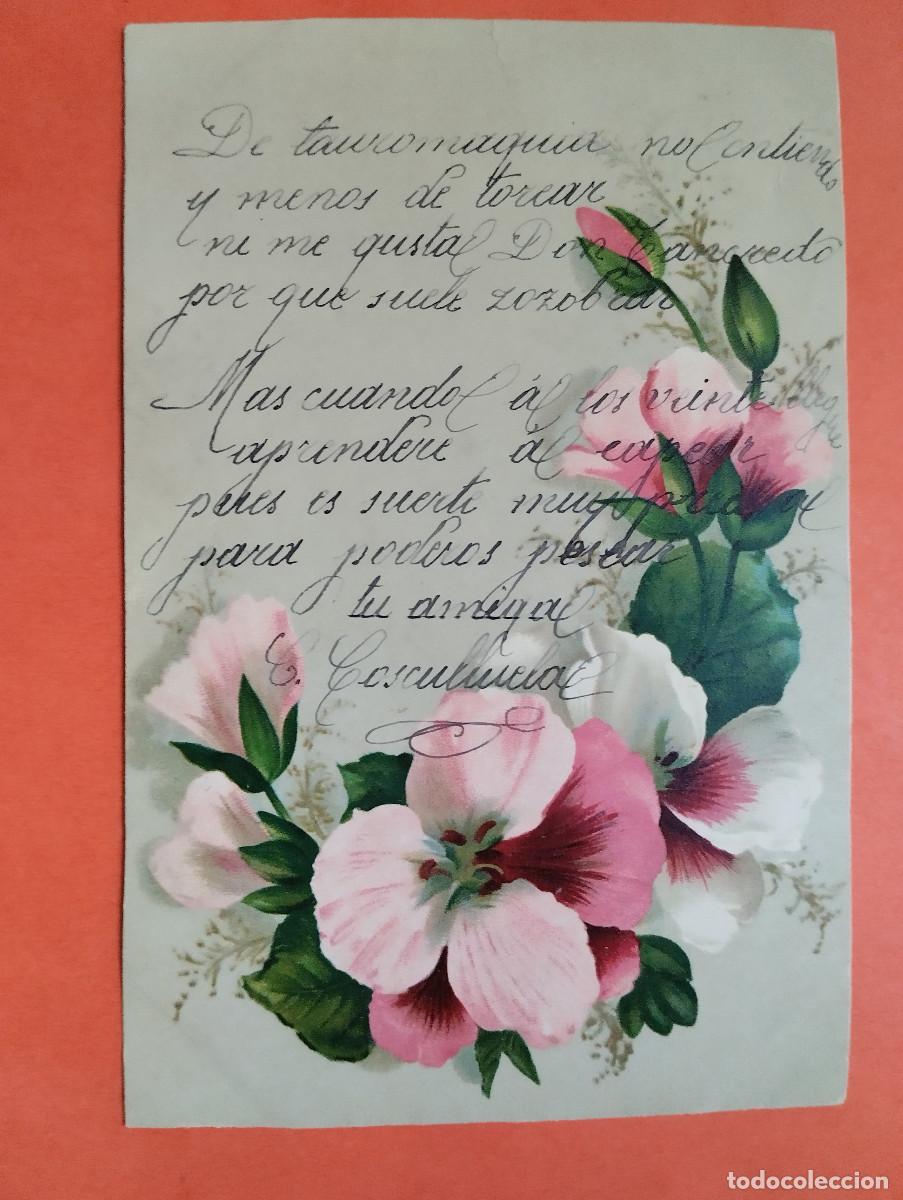 De tauromaquia no entiendo
y menos de torear
ni me gusta Don Tancredo
por que suele zozobrar
Mas cuando á los veinte llegue
aprendere á capear
pues es suerte muy
para poderos pescar
tu amiga
E. Coscullluela
todocoleccion